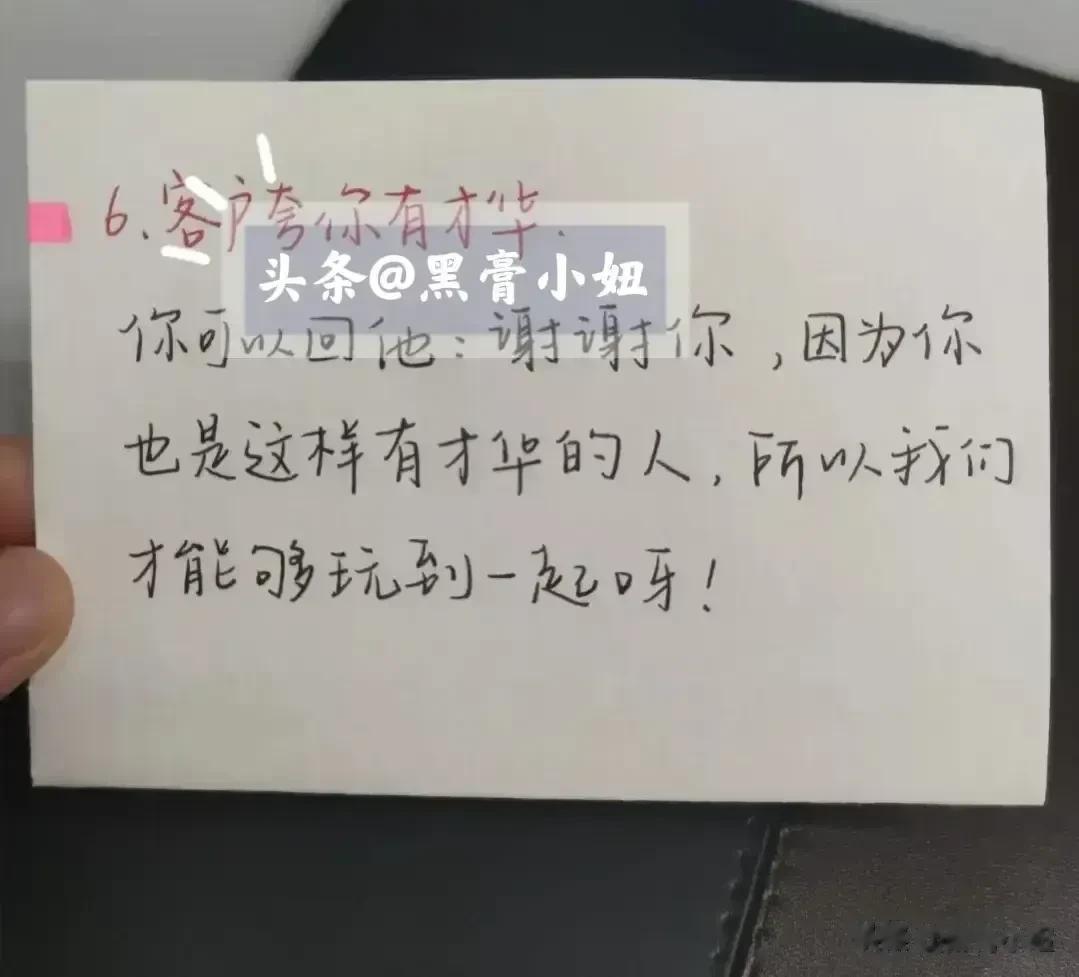 6.客户夸你有才华.
头条@黑膏小妞
你可以回他:谢谢你,因为你
也是这样有才华的人,所以我们
才能够玩到一起呀!